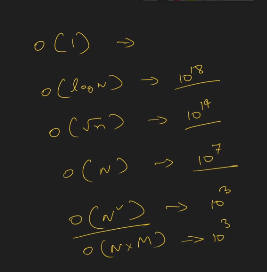 O(1) →
O(log N) → 10^18
O(√n) → 10^14
O(N) → 10^7
O(N²) → 10^3
O(N×M) → 10^3